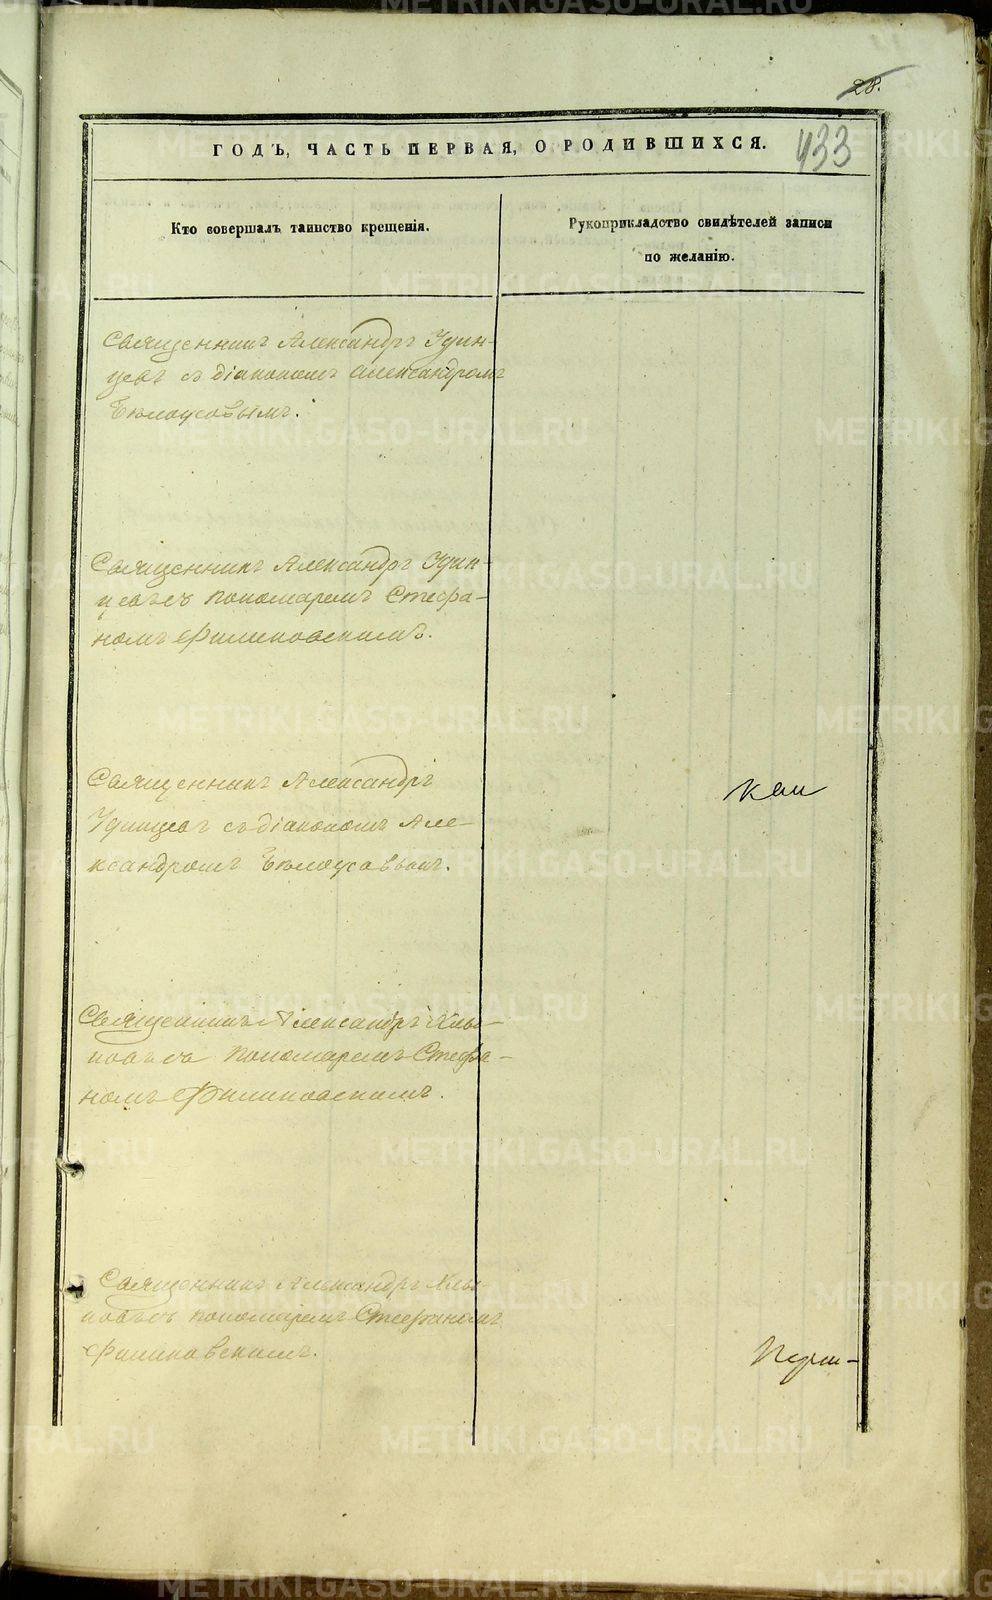 28.
433
ГОДЪ, ЧАСТЬ ПЕРВАЯ, О РОДИВШИХСЯ.
Кто совершалъ таинство крещенія.
Рукоприкладство свидѣтелей записи
по желанію.
Священникъ Александръ Удин-
цовъ съ діакономъ Александромъ
Бѣлоусовымъ.
Священникъ Александръ Удин-
цовъ съ пономаремъ Стефа-
номъ Филиповскимъ.
Священникъ Александръ
Удинцовъ съ діакономъ Але-
ксандромъ Бѣлоусовымъ.
Священникъ Александръ Хлы-
новъ съ пономаремъ Стефа-
номъ Филиповскимъ.
Священникъ Александръ Хлы-
новъ съ пономаремъ Стефаномъ
Филиповскимъ.
METRIKI.GASO-URAL.RU